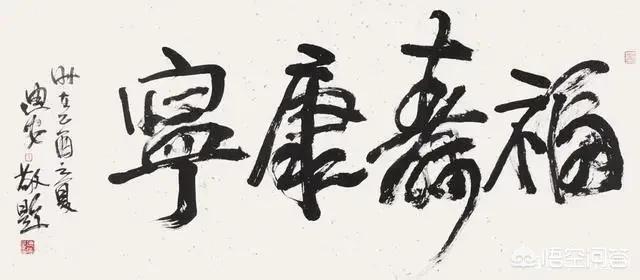 福壽康寧
时在乙酉之夏
敬题
悟空问答